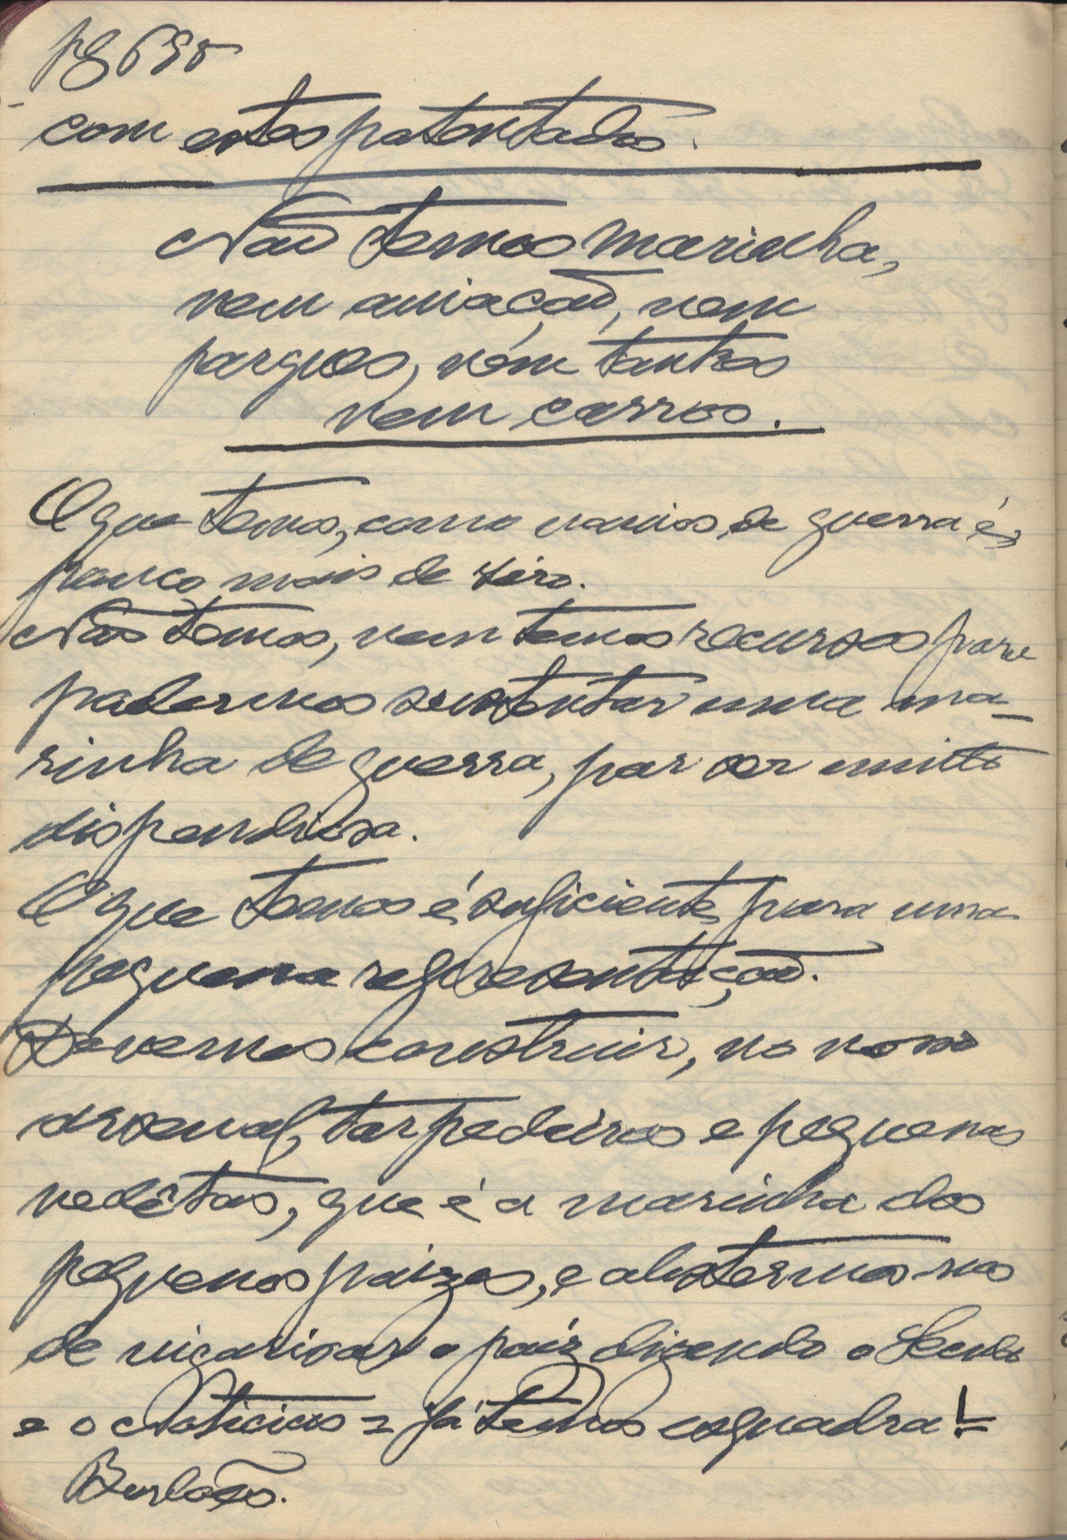 pg 695
com estes potentados.
Não temos marinha,
nem aviação, nem
parques, nem tanks
nem carros.
O que temos, como navios de guerra é,
pouco mais de zero.
Não temos, nem temos recursos para
podermos sustentar uma ma-
rinha de guerra, por ser muito
dispendiosa.
O que temos é suficiente para uma
pequena representação.
Devemos construir, no nosso
arsenal, torpedeiros e pequenas
vedêtas, que é a marinha dos
pequenos paizes, e abstermos-nos
de vigarisar o paíz dizendo o Seculo
e o Noticias = já temos esquadra!
Burlões.